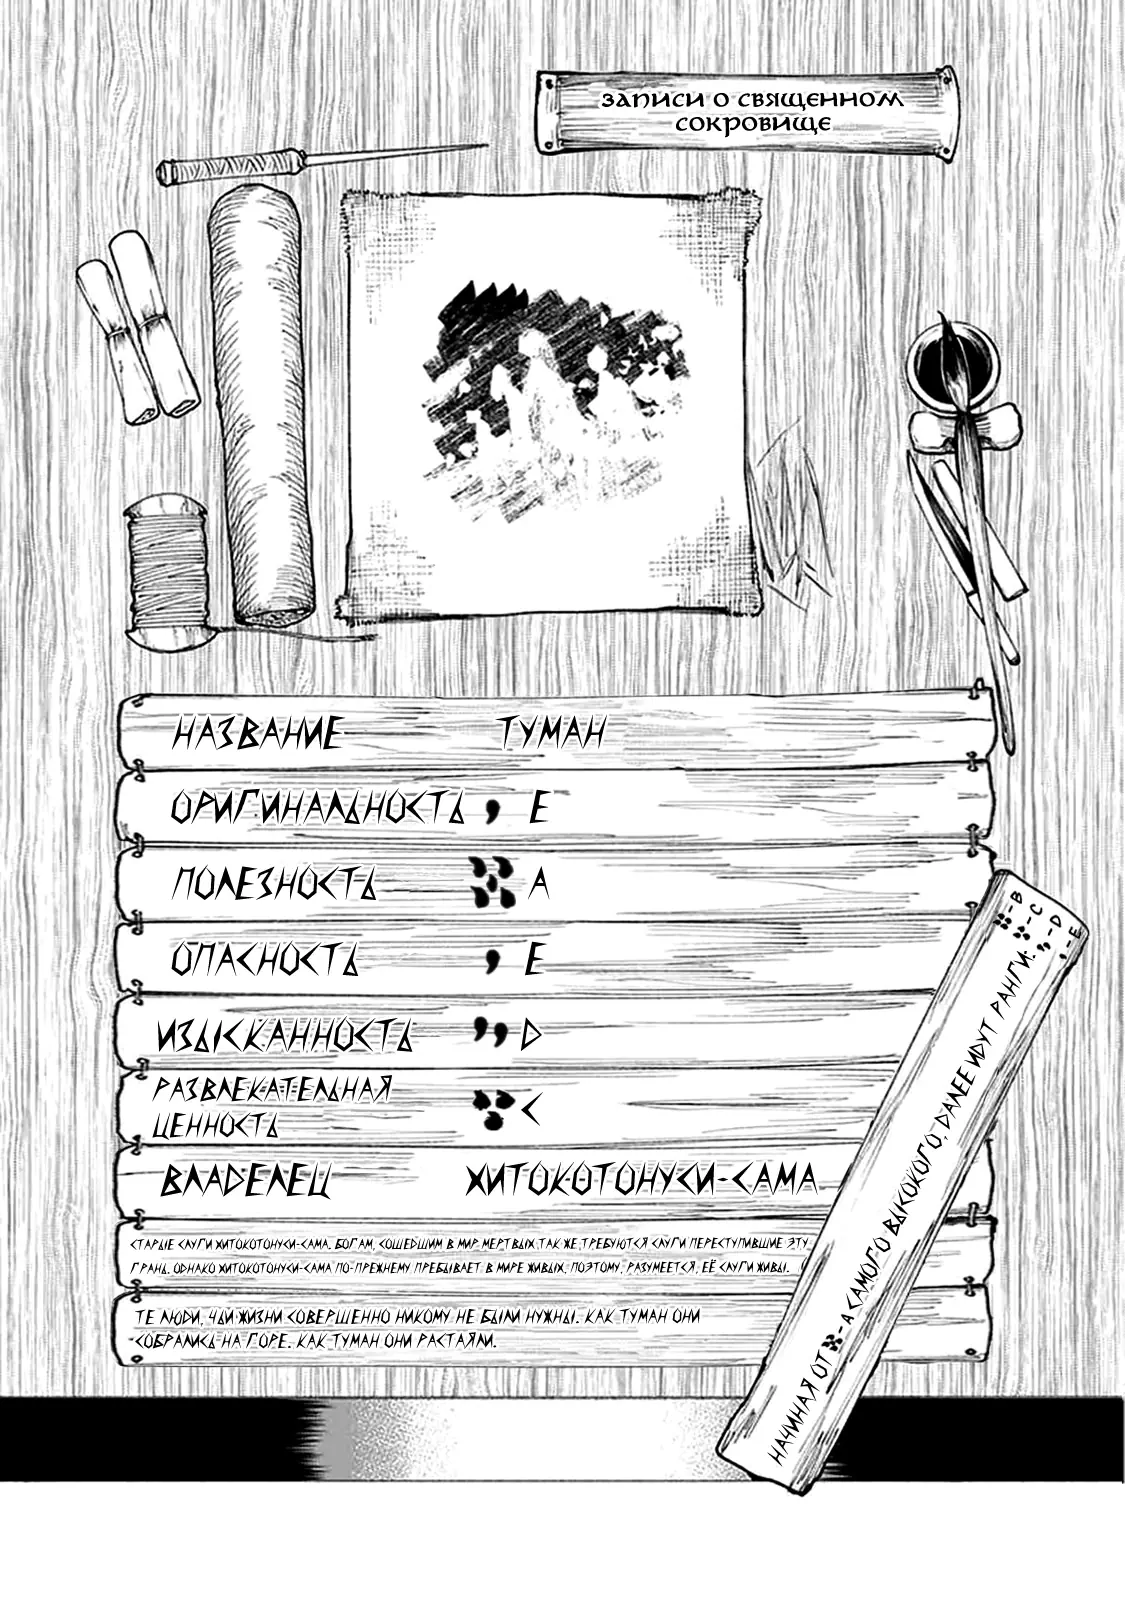 ЗАПИСИ О СВЯЩЕННОМ
СОКРОВИЩЕ
НАЗВАНИЕ ТУМАН
ОРИГИНАЛЬНОСТЬ E
ПОЛЕЗНОСТЬ A
ОПАСНОСТЬ E
ИЗЫСКАННОСТЬ D
РАЗВЛЕКАТЕЛЬНАЯ
ЦЕННОСТЬ C
ВЛАДЕЛЕЦ ХИТОКОТОНУСИ-САМА
СТАРЫЕ СЛУГИ ХИТОКОТОНУСИ-САМА. БОГАМ, СОШЕДШИМ В МИР МЕРТВЫХ ТАК ЖЕ ТРЕБУЮТСЯ СЛУГИ ПЕРЕСТУПИВШИЕ ЭТУ
ГРАНЬ. ОДНАКО ХИТОКОТОНУСИ-САМА ПО-ПРЕЖНЕМУ ПРЕБЫВАЕТ В МИРЕ ЖИВЫХ, ПОЭТОМУ, РАЗУМЕЕТСЯ, ЕЁ СЛУГИ ЖИВЫ.
ТЕ ЛЮДИ, ЧЬИ ЖИЗНИ СОВЕРШЕННО НИКОМУ НЕ БЫЛИ НУЖНЫ. КАК ТУМАН ОНИ
СОБРАЛИСЬ НА ГОРЕ. КАК ТУМАН ОНИ РАСТАЯЛИ.
НАЧИНАЯ ОТ - A САМОГО ВЫСОКОГО, ДАЛЕЕ ИДУТ РАНГИ:
- B
- C
- D
- E